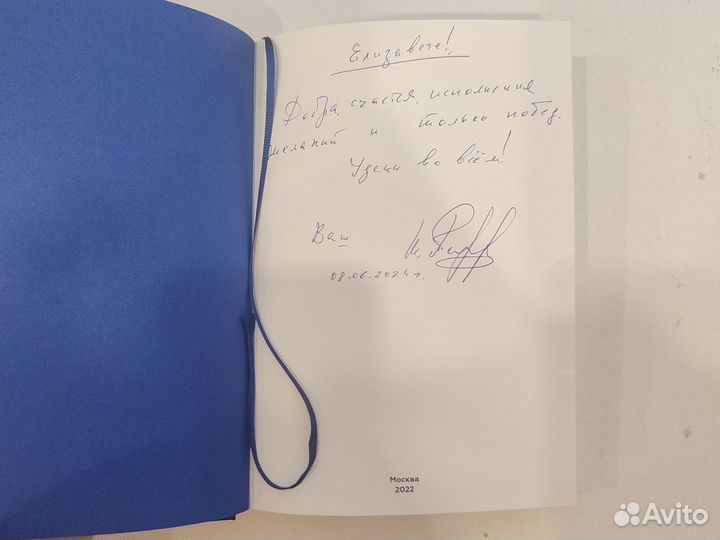 Елизавете!
Добра, счастья, исполнения
желаний и только побед.
Удачи во всём!
Ваш
08.06.2024 г.
Москва
2022
Avito